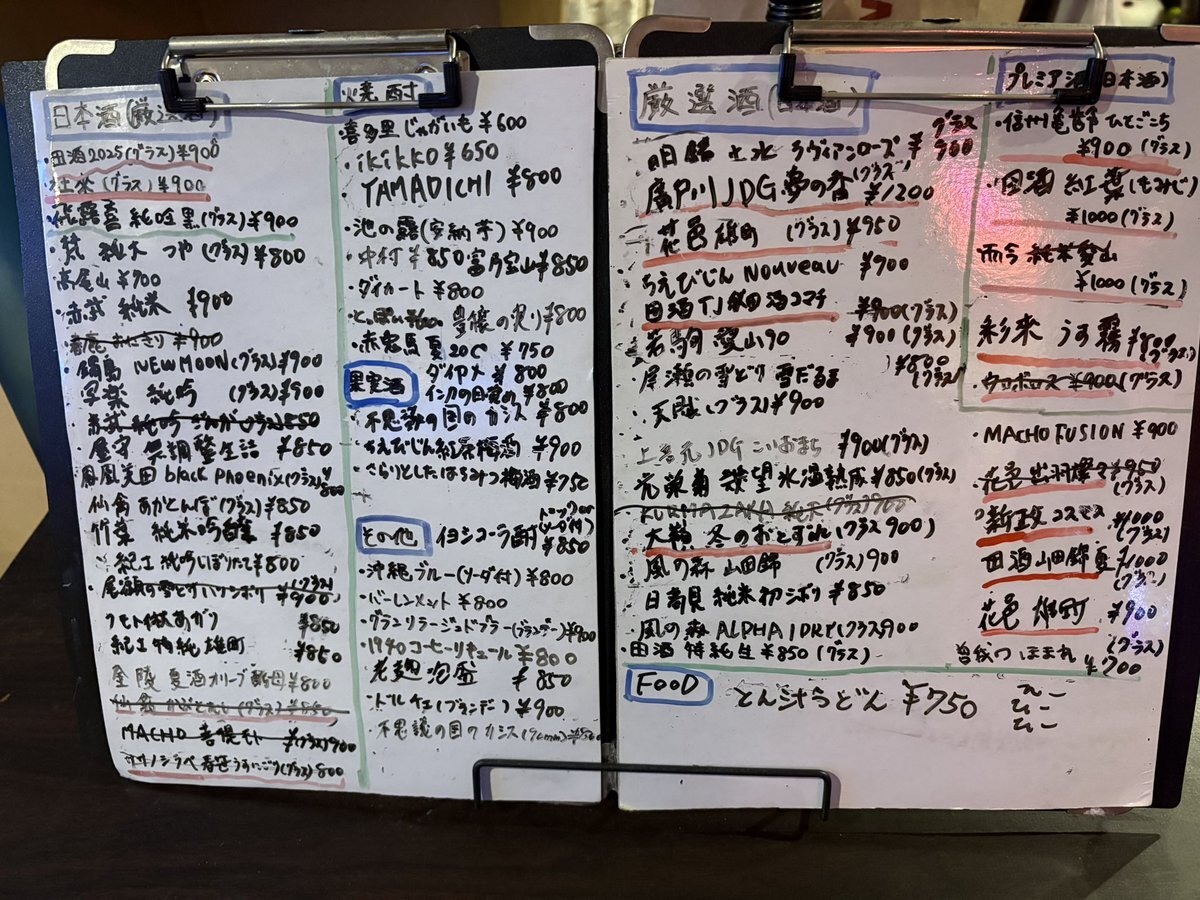 日本酒(厳選酒)
・田酒2025(グラス)¥900
(グラス)¥900
純吟 黒(グラス)¥900
・梵 純大 つや(グラス)¥800
・高尾山 ¥700
・赤武 純米 ¥900
¥900
・鍋島 NEW MOON(グラス)¥900
・写楽 純吟 (グラス)¥900
・屋守 無調整生詰 ¥850
鳳凰美田 black phoenix(グラス)¥800
・仙禽 あかとんぼ(グラス)¥850
・竹葉 純米吟醸 ¥850
・紀土 純吟しぼりたて¥800
¥850
紀土 特純 雄町 ¥850
金陵 夏酒オリーブ酵母¥800
MACHO ¥(グラス)900
(グラス)800
焼酎
・喜多里 じゃがいも ¥600
・ikikko ¥650
YAMADICHI ¥800
・池の露(安納芋)¥900
・中村 ¥850 富乃宝山¥850
・ダイカート ¥800
¥800
・赤兎馬 夏20℃ ¥750
ダイヤメ ¥800
インカの目覚め ¥800
果実酒
・不思議の国のカシス ¥800
・ちえびじん紅茶梅酒 ¥900
・さらりとしたはちみつ梅酒 ¥750
その他
ヨシコーラ酎 ¥850
・沖縄ブルー(ソーダ付)¥800
¥800
・グランリラージュドブラー(ブランデー)¥900
・1940コーヒーリキュール ¥800
老麹 泡盛 ¥850
・ドルチェ(ブランデー)¥900
・不思議の国のカシス
厳選酒(日本酒)
グラス
ラヴィアンローズ ¥900
廣戸川 JDG 夢の香(グラス)¥1200
・花邑 雄町 (グラス)¥950
・ちえびじん nouveau ¥900
・田酒 TJ 秋田酒コマチ ¥900(グラス)
・若駒 愛山90 ¥900(グラス)
・尾瀬の雪どけ 雪だるま ¥800(グラス)
・天賦(グラス)¥900
上喜元 JDG こいおまち ¥900(グラス)
・元菜菊 氷温熟成 ¥850(グラス)
KURMAZAKA
冬のおとずれ(グラス900)
・風の森 山田錦 (グラス)900
・日高見 純米初シボリ ¥850
・風の森 ALPHA 1 DRY(グラス)900
・田酒 特純生 ¥850(グラス)
FOOD
とん汁うどん ¥750
プレミア酒(日本酒)
・信州亀齢 ひとごこち
¥900(グラス)
・田酒 紅葉(もみじ)
¥1000(グラス)
・而今 純米愛山
¥1000(グラス)
・彩來 うす霧 ¥800(グラス)
・ウロボロス ¥900(グラス)
・MACHO FUSION ¥900
・花邑 出羽燦々 ¥950(グラス)
・新政 コスモス ¥1000(グラス)
田酒 山田錦 夏 ¥1000(グラス)
・花邑 雄町 ¥900(グラス)
曽我の ほまれ ¥700